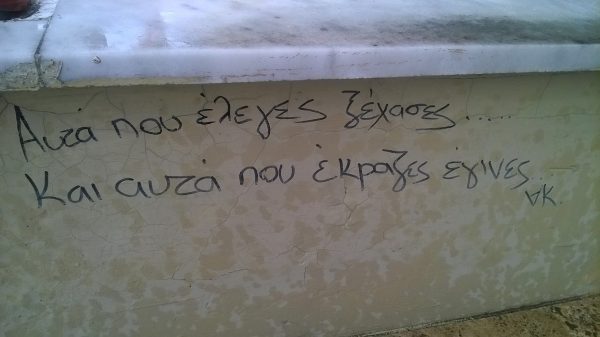 Αυτά που έλεγες ξέχασες.....
Και αυτά που έκραζες έγινες...